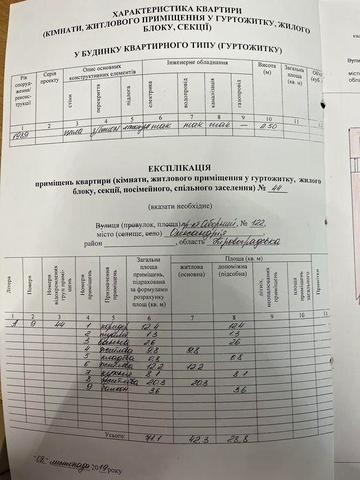 ХАРАКТЕРИСТИКА КВАРТИРИ
(КІМНАТИ, ЖИТЛОВОГО ПРИМІЩЕННЯ У ГУРТОЖИТКУ, ЖИЛОГО
БЛОКУ, СЕКЦІЇ)
У БУДИНКУ КВАРТИРНОГО ТИПУ (ГУРТОЖИТКУ)
Рік споруд-ження/ реконс-трукції
Серія проекту
Опис основних конструктивних елементів
Інженерне обладнання
Висота (м)
Загальна площа (кв. м)
стіни перекриття підлога електрика водопровід каналізація газопровід
1 2 3 4 5 6 7 8 9 10 11
1989 так так так — 2.50
ЕКСПЛІКАЦІЯ
приміщень квартири (кімнати, житлового приміщення у гуртожитку, жилого
блоку, секції, посімейного, спільного заселення) № 44
(вказати необхідне)
Вулиця (провулок, площа) пр-кт Соборний, № 122,
місто (селище, село) Олександрія
район , область Кіровоградська
Літера
Номери
Номери відокремлених груп приміщень
Номери приміщень
Призначення приміщень
Загальна площа приміщень, підрахована за формулами розрахунку площ (кв. м)
Площа (кв. м)
житлова (основна)
допоміжна (підсобна)
площа приміщень загального
Примітки
1 2 3 4 5 6 7 8 9 10 11
А 9 44 1 коридор 12.4 12.4
2 1.3 1.3
3 ванна 2.6 2.6
4 житлова 9.8 9.8
5 кладова 0.8 0.8
6 житлова 12.2 12.2
7 кухня 8.1 8.1
8 житлова 20.3 20.3
9 балкон 3.6 3.6
Усього: 71.1 42.3 28.8
листопада 2019 року